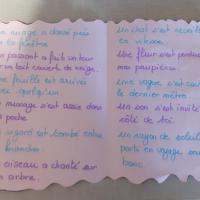 nuage a dansé près
la fenêtre.
passant a fait un tour
un toit couvert de neige.
feuille est arrivée
avec quelqu'un.
message s'est assise dans
poche
regard est tombé entre
branches.
oiseau a chanté sur
arbre.
Un chat s'est
en vitesse.
Une fleur s'est
mes paupières.
Une vague s'est
le dernier métro.
Un son s'est invité
côté de toi.
Un rayon de soleil
parti en voyage
banc.